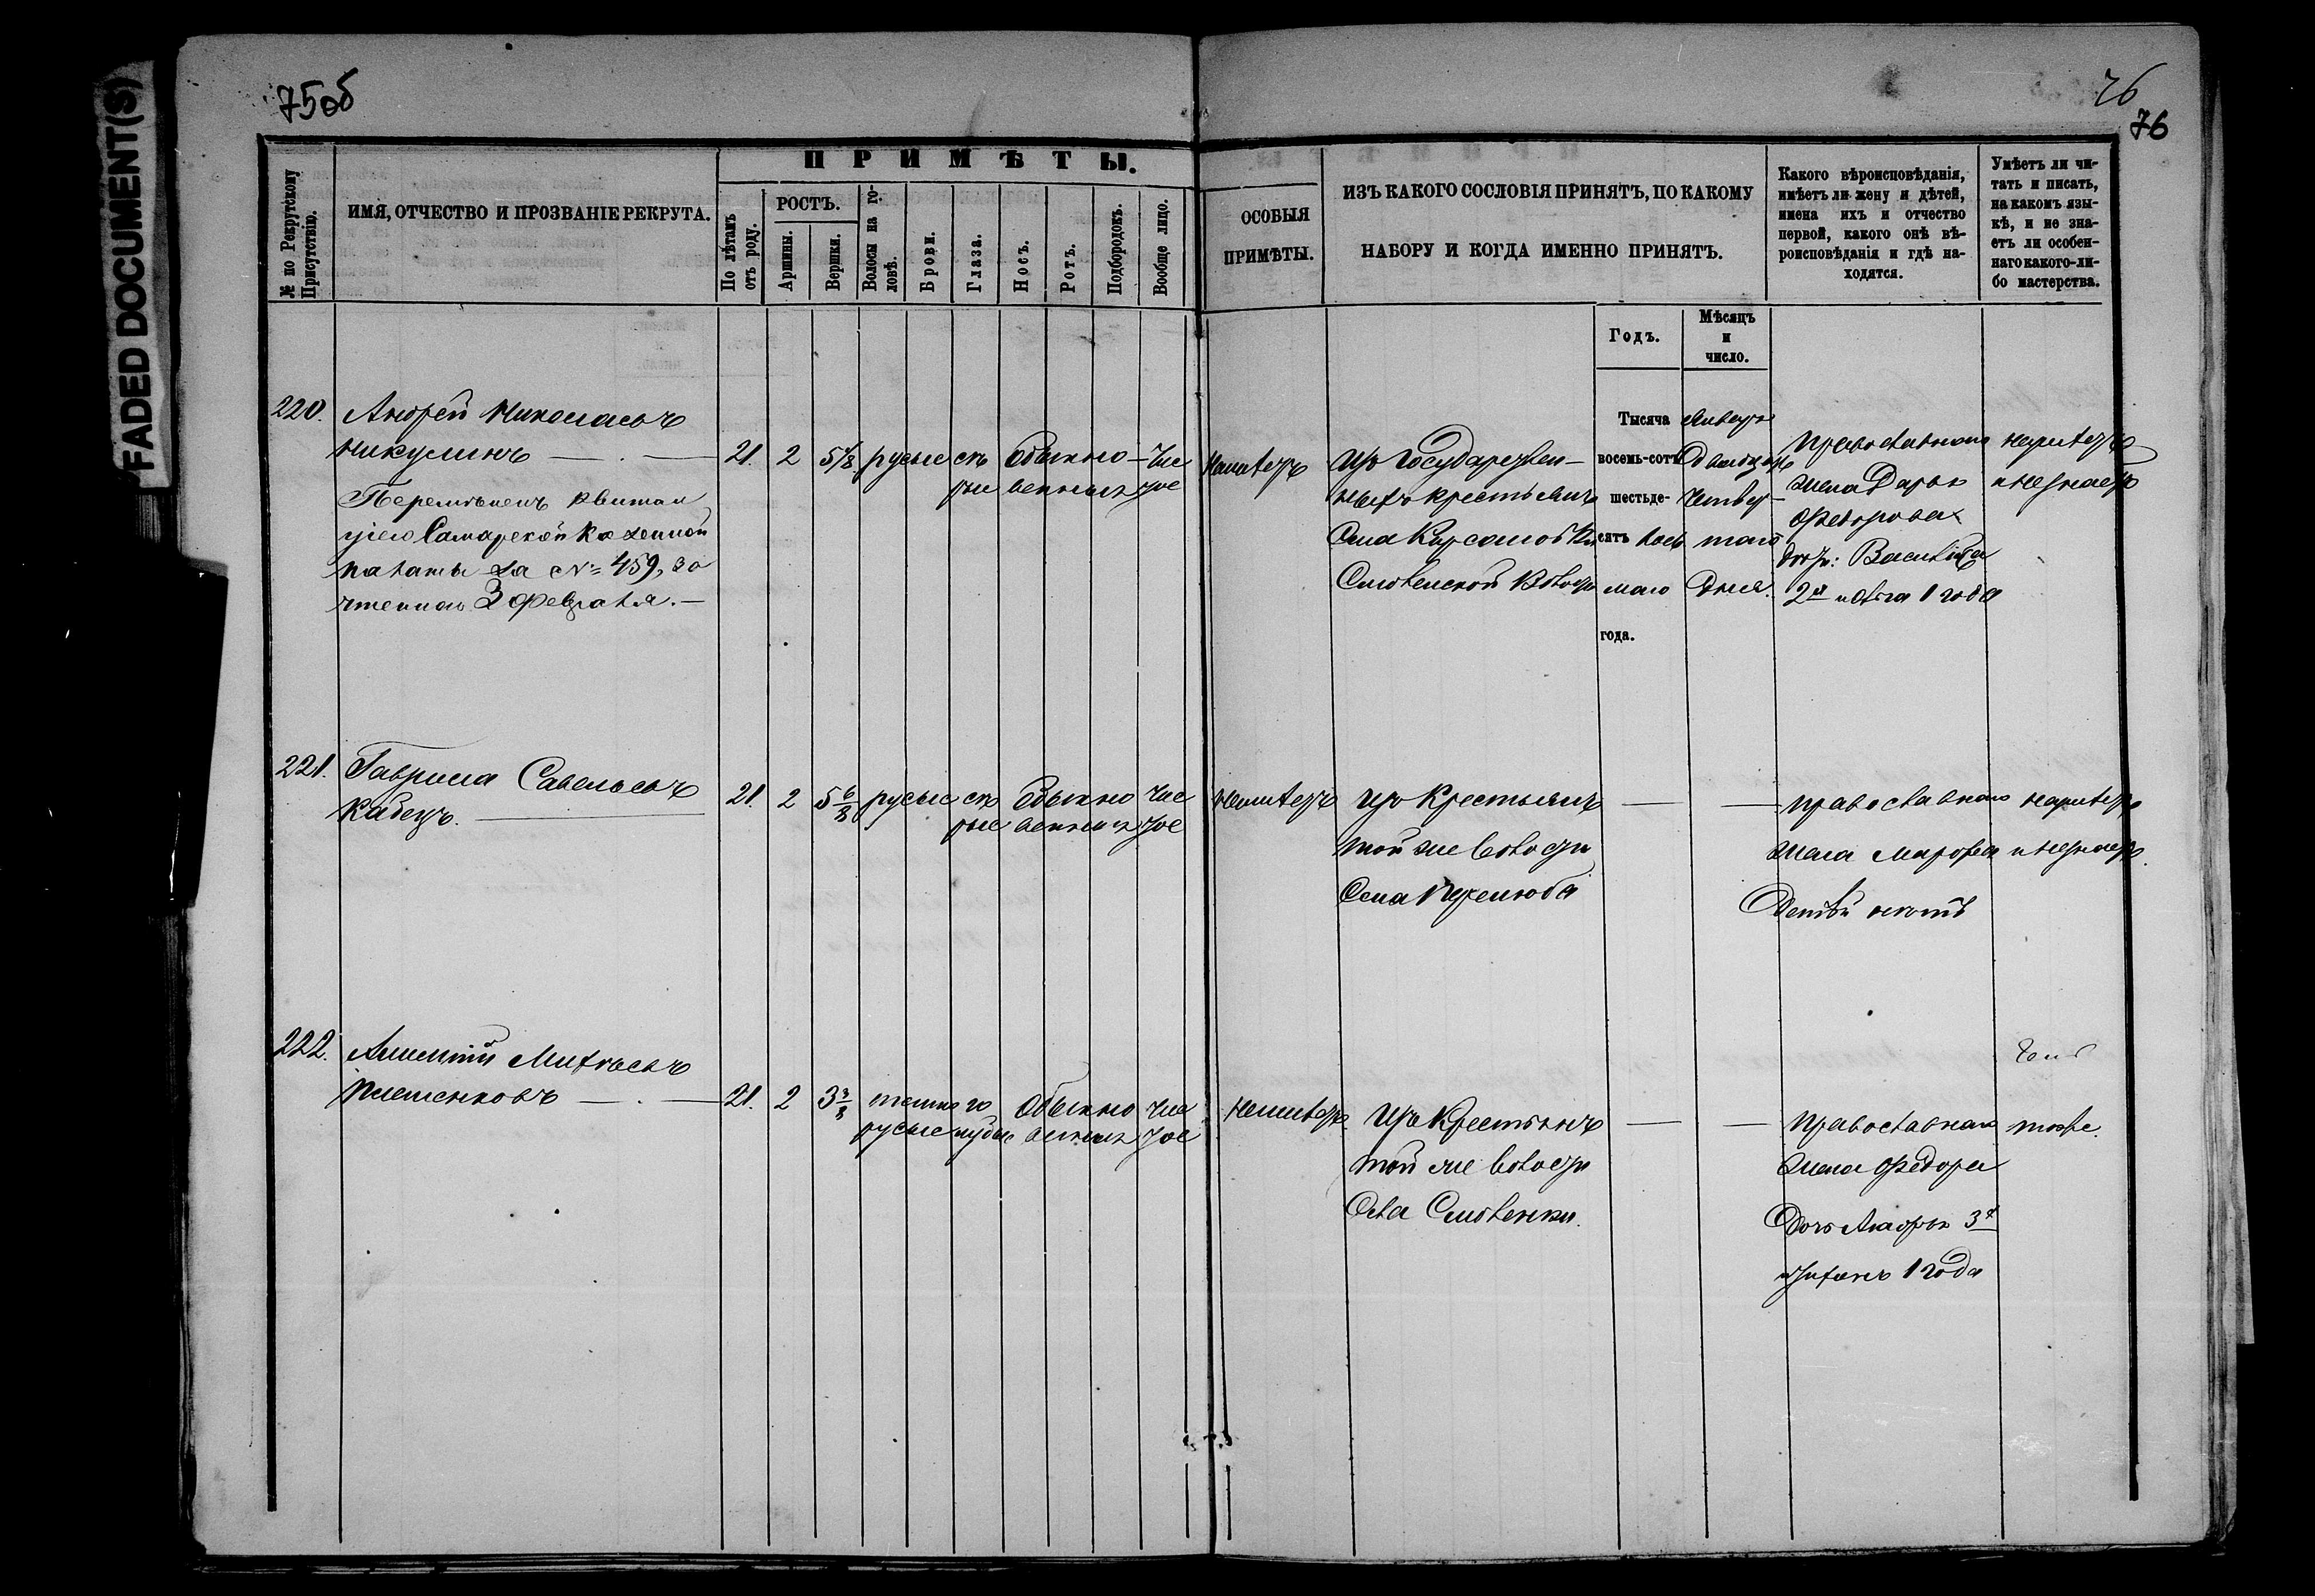 FADED DOCUMENT(S)
75об
76
76
№ по Рекрутскому Присутствію.
ИМЯ, ОТЧЕСТВО И ПРОЗВАНІЕ РЕКРУТА.
ПРИМѢТЫ.
По лѣтамъ отъ роду.
РОСТЪ.
Аршины.
Вершки.
Волосы на головѣ.
Брови.
Глаза.
Носъ.
Ротъ.
Подбородокъ.
Вообще лицо.
ОСОБЫЯ
ПРИМѢТЫ.
ИЗЪ КАКОГО СОСЛОВІЯ ПРИНЯТЪ, ПО КАКОМУ
НАБОРУ И КОГДА ИМЕННО ПРИНЯТЪ.
Годъ.
Мѣсяцъ
и
число.
Какого вѣроисповѣданія,
имѣетъ ли жену и дѣтей,
имена ихъ и отчество
первой, какого онѣ вѣ-
роисповѣданія и гдѣ на-
ходятся.
Умѣетъ ли чи-
тать и писать,
на какомъ язы-
кѣ, и не зна-
етъ ли особен-
наго какого-ли-
бо мастерства.
220. Андрей Николаевъ
Никулинъ — 21. 2 5 1/8 русые сѣ обыкно- чис
рые венныя тое
Перемѣненъ квитан
цiею Самарской Казенной
палаты за № 459, за
чтенною 3 Февраля.—
Неимѣетъ
Изъ Государствен-
ныхъ крестьянъ
Села Кирсановки
Смоленской Волости
Тысяча
восемь-сотъ
шестьде-
сятъ вось
маго
года.
Января
Двадцать
Четвер-
таго
Дня.
Православнаго
жена Дарья
Федорова
дѣти: Василиса
2х и Ольга 1 года
неумѣетъ
и незнаетъ
221. Гаврила Савельевъ
Кабецъ. 21. 2 5 6/8 русые сѣ Обыкно чис
рые венныя тое
Неимѣетъ
изъ Крестьянъ
той же волости
Села Пузелюба
— —
православнаго
жена Марфа
Дѣтей нѣтъ
неумѣетъ
и незнаетъ.
222. Алексѣй Матвѣевъ
Плешенковъ — 21. 2 3 3/8 темно го Обыкно чис
русые лубые венныя тое
Неимѣетъ
Изъ Крестьянъ
той же волости
Села Смоленки.
— —
Православнаго
Жена Федора
Дочь 3х
1 года
тоже.